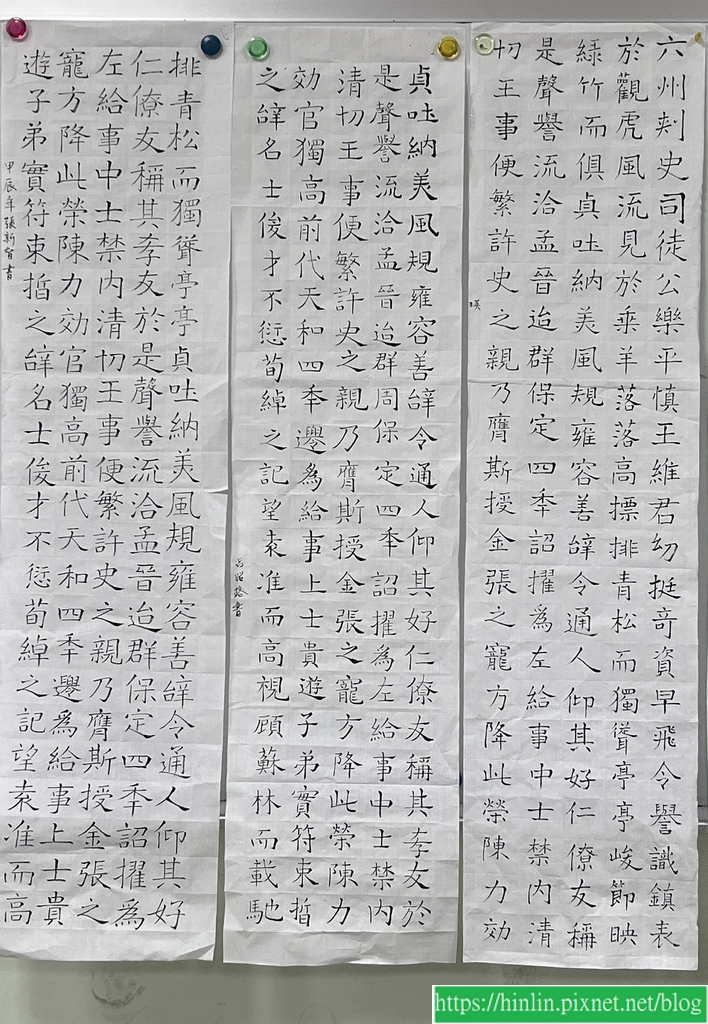 六州刺史司徒公樂平慎王維君幼挺奇資早飛令譽識鎮表
於觀虎風流見於乘羊落落高摽排青松而獨聳亭亭峻節映
綠竹而俱貞吐納美風規雍容善辝令通人仰其好仁僚友稱
是聲譽流洽孟晉迨群保定四秊詔擢為左給事中士禁內清
切王事便繁許史之親乃膺斯授金張之寵方降此榮陳力効
貞吐納美風規雍容善辝令通人仰其好仁僚友稱其孝友於
是聲譽流洽孟晉迨群周保定四秊詔擢為左給事中士禁內
清切王事便繁許史之親乃膺斯授金張之寵方降此榮陳力
効官獨高前代天和四秊遷為給事上士貴遊子弟實符束晳
之辝名士俊才不愆荀綽之記望袁准而高視顧蘇林而載馳
排青松而獨聳亭亭貞吐納美風規雍容善辝令通人仰其好
仁僚友稱其孝友於是聲譽流洽孟晉迨群保定四秊詔擢為
左給事中士禁內清切王事便繁許史之親乃膺斯授金張之
寵方降此榮陳力効官獨高前代天和四秊遷為給事上士貴
遊子弟實符束晳之辝名士俊才不愆荀綽之記望袁准而高
甲辰年張新智書
https://hinlin.pixnet.net/blog